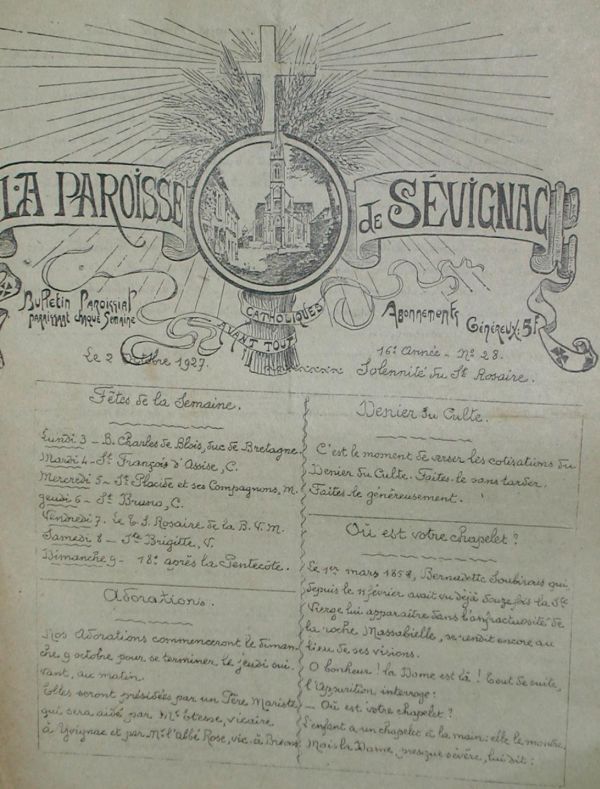 LA PAROISSE de SÉVIGNAC
Bulletin Paroissial
paraissant chaque Semaine
CATHOLIQUES
AVANT TOUT
Abonnements
Généreux: 5F
Le 2 Octobre 1927.
16e Année - No 28.
Solennité du St Rosaire.
Fêtes de la Semaine.
Lundi 3 - B. Charles de Blois, duc de Bretagne.
Mardi 4 - St François d'Assise, C.
Mercredi 5 - St Placide et ses Compagnons, m.
Jeudi 6 - St Bruno, C.
Vendredi 7. Le T. S. Rosaire de la B. V. M.
Samedi 8 - Ste Brigitte, V.
Dimanche 9 - 18e après la Pentecôte.
Adorations.
Nos Adorations commenceront le diman-
che 9 octobre pour se terminer le jeudi sui-
vant, au matin.
Elles seront présidées par un Père Mariste
qui sera aidé par Mr vicaire
à Yvignac et par Mr l'abbé Rose, vic. à
Denier du Culte.
C'est le moment de verser les cotisations du
Denier du Culte. Faites-le sans tarder.
Faites-le généreusement.
Où est votre chapelet ?
Le 1er mars 1858, Bernadette Soubirous qui,
depuis le 11 février avait vu déjà douze fois la Ste
Vierge lui apparaître dans l'anfractuosité de
la roche Massabielle, se rendit encore au
lieu de ses visions.
O bonheur ! la Dame est là ! Tout de suite,
l'Apparition interroge:
- Où est votre chapelet ?
L'enfant a un chapelet à la main: elle le montre.
Mais la Dame, presque sévère, lui dit: